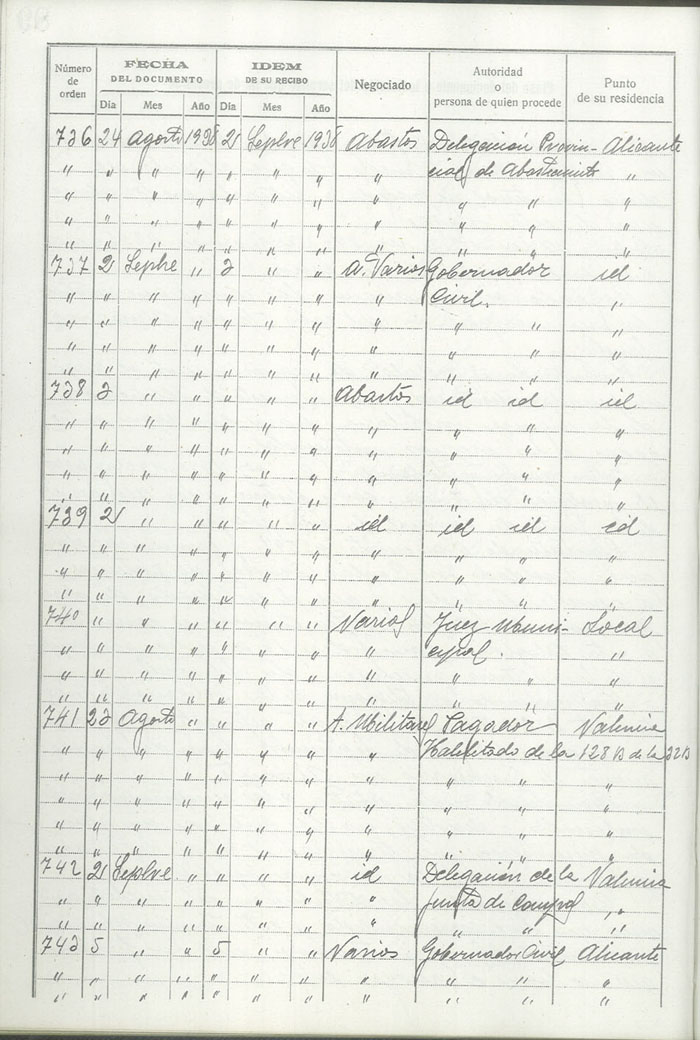 Número de orden | FECHA DEL DOCUMENTO | IDEM DE SU RECIBO | Negociado | Autoridad o persona de quien procede | Punto de su residencia
Día | Mes | Año | Día | Mes | Año
736 24 Agosto 1938 2 Sepbre 1938 Abastos Delegación Provin- Alicante
" " " " " " " " cial de Abastecimto "
" " " " " " " " " " "
" " " " " " " " " " "
" " " " " " " " " " "
737 2 Sepbre " 2 " " A. Varios Gobernador id
" " " " " " " " Civil. "
" " " " " " " " " " "
" " " " " " " " " " "
" " " " " " " " " " "
738 2 " " " " " Abastos id id id
" " " " " " " " " " "
" " " " " " " " " " "
" " " " " " " " " " "
" " " " " " " " " " "
739 2 " " " " " id id id id
" " " " " " " " " " "
" " " " " " " " " " "
" " " " " " " " " " "
740 " " " " " " Varios Juez Muni- Local
" " " " " " " " cipal. "
" " " " " " " " " " "
" " " " " " " " " " "
741 23 Agosto " " " " A. Militares Pagador Valencia
" " " " " " " " Habilitado de la 128 B de la
" " " " " " " " " " "
" " " " " " " " " " "
" " " " " " " " " " "
" " " " " " " " " " "
742 2 Sepbre " " " " id Delegación de la Valencia
" " " " " " " " Junta de "
" " " " " " " " " " "
743 5 " " 5 " " Varios Gobernador Civil Alicante
" " " " " " " " " " "
" " " " " " " " " " "